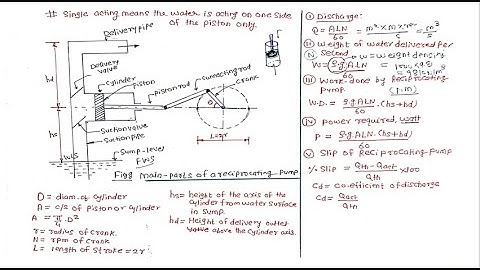 # Single acting means the water is acting on one side
of the piston only.
Delivery pipe
Delivery
valve
cylinder
piston
piston rod
connecting rod
crank
hd
hs
θ
L=2r
Suction valve
Suction pipe
Sump-level
W.S.
Fig: main-parts of a reciprocating pump
D = diam. of cylinder
A = c/s of piston or cylinder
A = π/4 D²
r = radius of crank
N = rpm of crank
L = length of stroke = 2r
hs = height of the axis of the
cylinder from water surface
in sump.
hd = Height of delivery outlet
valve above the cylinder axis.
I Discharge:
Q = ALN/60 = m²×m×
= m³/s
II Weight of water delivered per
Second
w = weight density
W = ρ.g.ALN/60
III Work done by Reciprocating
pump
W.D. = ρ.g.ALN/60 .(hs+hd)
IV Power required,
P = ρ.g.ALN.(hs+hd)/60
V Slip of Reciprocating-Pump
% Slip = Qth - Qact/Qth ×100
Cd = co-efficient of discharge
Cd = Qact/Qth